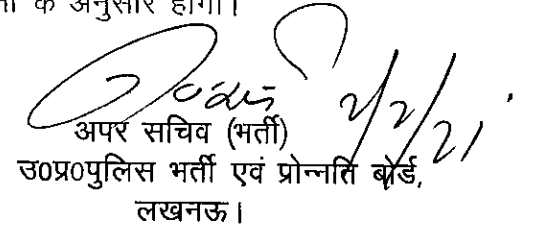 के अनुसार होगी।
2/2/21
अपर सचिव (भर्ती)
उ0प्र0पुलिस भर्ती एवं प्रोन्नति बोर्ड,
लखनऊ।